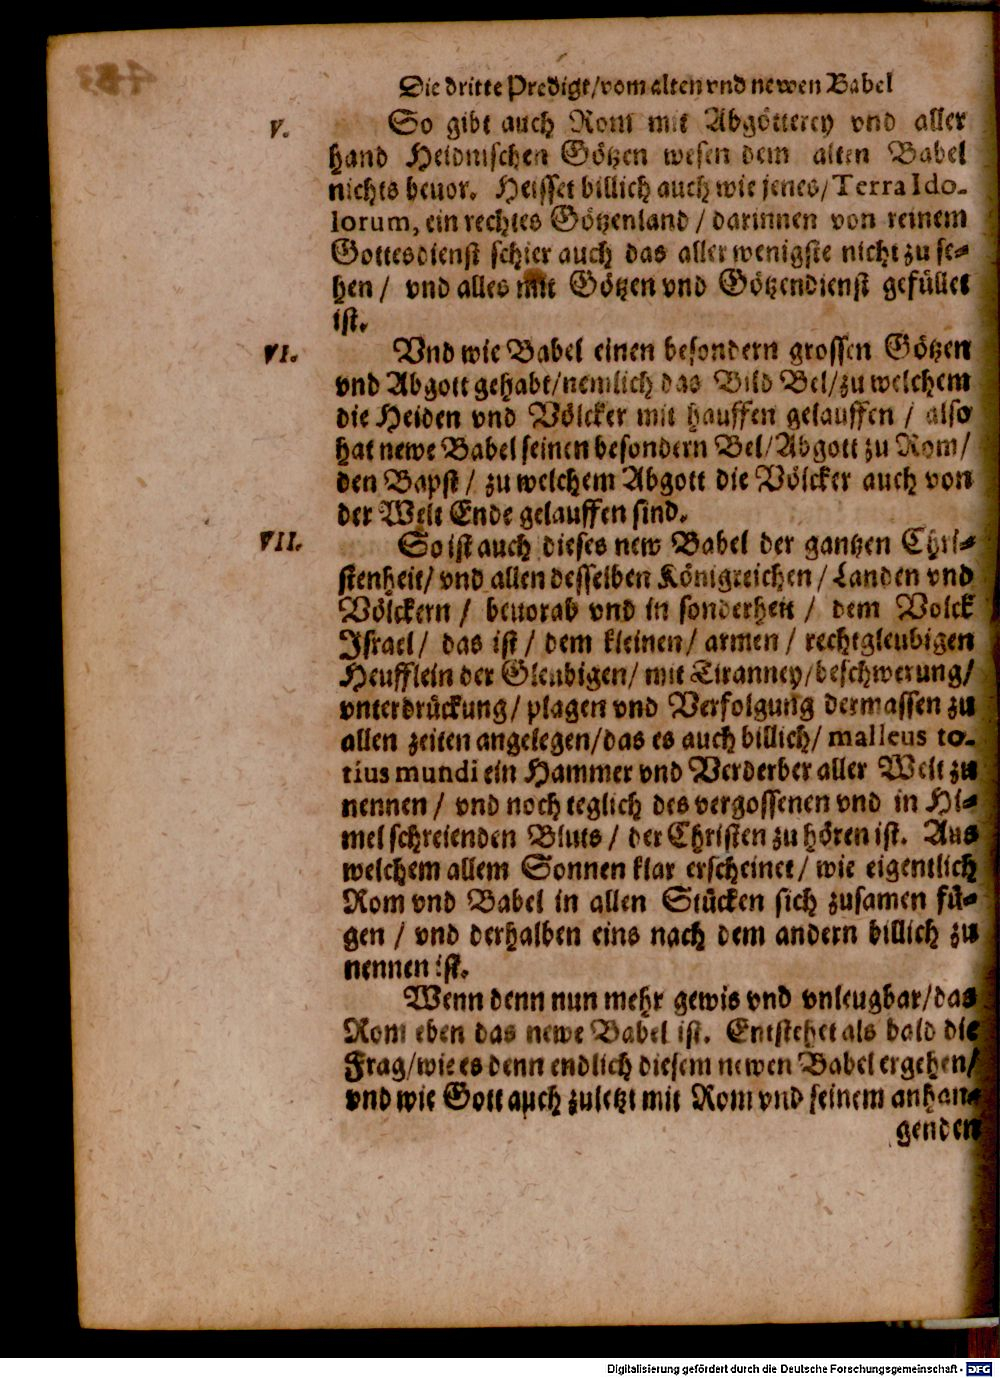 Die dritte Predigt/vom alten vnd newen Babel
V. So gibt auch Rom mit Abgötterey vnd aller
hand Heidnischen Götzen wesen dem alten Babel
nichts beuor. Heisset billich auch wie jenes/Terra Ido-
lorum, ein rechtes Götzenland / darinnen von reinem
Gottesdienst schier auch das aller wenigste nicht zu se-
hen / vnd alles mit Götzen vnd Götzendienst gefüllet
ist.
VI. Vnd wie Babel einen besondern grossen Götzen
vnd Abgott gehabt/nemlich das Bild Bel/zu welchem
die Heiden vnd Völcker mit hauffen gelauffen / also
hat newe Babel seinen besondern Bel/Abgott zu Rom/
den Bapst / zu welchem Abgott die Völcker auch von
der Welt Ende gelauffen sind.
VII. So ist auch dieses new Babel der gantzen Chri-
stenheit/ vnd allen desselben Königreichen / Landen vnd
Völckern / beuorab vnd in sonderheit / dem Volck
Israel/ das ist / dem kleinen/ armen / rechtgleubigen
Heufflein der Gleubigen/ mit Tiranney/beschwerung/
vnterdrückung/ plagen vnd Verfolgung dermassen zu
allen zeiten angelegen/das es auch billich/ malleus to-
tius mundi ein Hammer vnd Verderber aller Welt zu
nennen / vnd noch teglich des vergossenen vnd in Hi-
mel schreienden Bluts / der Christen zu hören ist. Aus
welchem allem Sonnen klar erscheinet/ wie eigentlich
Rom vnd Babel in allen Stücken sich zusamen fü-
gen / vnd derhalben eins nach dem andern billich zu
nennen ist.
Wenn denn nun mehr gewis vnd vnleugbar/das
Rom eben das newe Babel ist. Entstehet als bald die
Frag/wie es denn endlich diesem newen Babel ergehen/
vnd wie Gott auch zuletzt mit Rom vnd seinem anhan-
genden
Digitalisierung gefördert durch die Deutsche Forschungsgemeinschaft - DFG